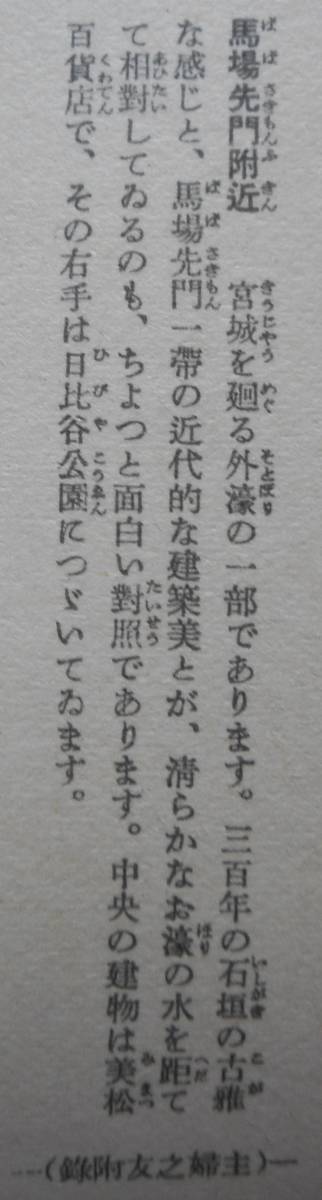 馬場先門附近　宮城を廻る外濠の一部であります。三百年の石垣の古雅
な感じと、馬場先門一帶の近代的な建築美とが、清らかなお濠の水を距て
て相對してゐるのも、ちよつと面白い對照であります。中央の建物は美松
百貨店で、その右手は日比谷公園につゞいてゐます。
(主婦之友附錄)